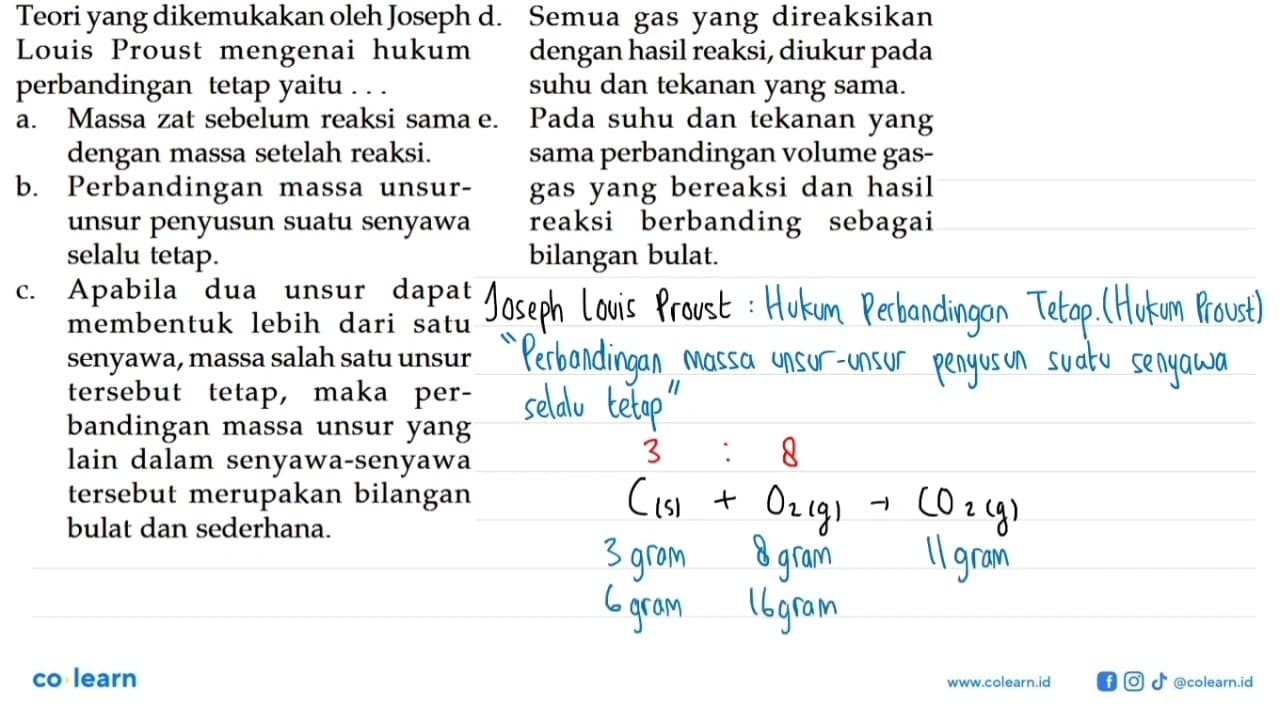 Teori yang dikemukakan oleh Joseph
Louis Proust mengenai hukum
perbandingan tetap yaitu . . .
a. Massa zat sebelum reaksi sama
dengan massa setelah reaksi.
b. Perbandingan massa unsur-
unsur penyusun suatu senyawa
selalu tetap.
c. Apabila dua unsur dapat
membentuk lebih dari satu
senyawa, massa salah satu unsur
tersebut tetap, maka per-
bandingan massa unsur yang
lain dalam senyawa-senyawa
tersebut merupakan bilangan
bulat dan sederhana.
d. Semua gas yang direaksikan
dengan hasil reaksi, diukur pada
suhu dan tekanan yang sama.
e. Pada suhu dan tekanan yang
sama perbandingan volume gas-
gas yang bereaksi dan hasil
reaksi berbanding sebagai
bilangan bulat.
Joseph Louis Proust : Hukum Perbandingan Tetap. (Hukum Proust)
"Perbandingan massa unsur-unsur penyusun suatu senyawa
selalu tetap"
3 : 8
C(s) + O2(g) → CO2(g)
3 gram 8 gram 11 gram
6 gram 16 gram
co learn
www.colearn.id @colearn.id